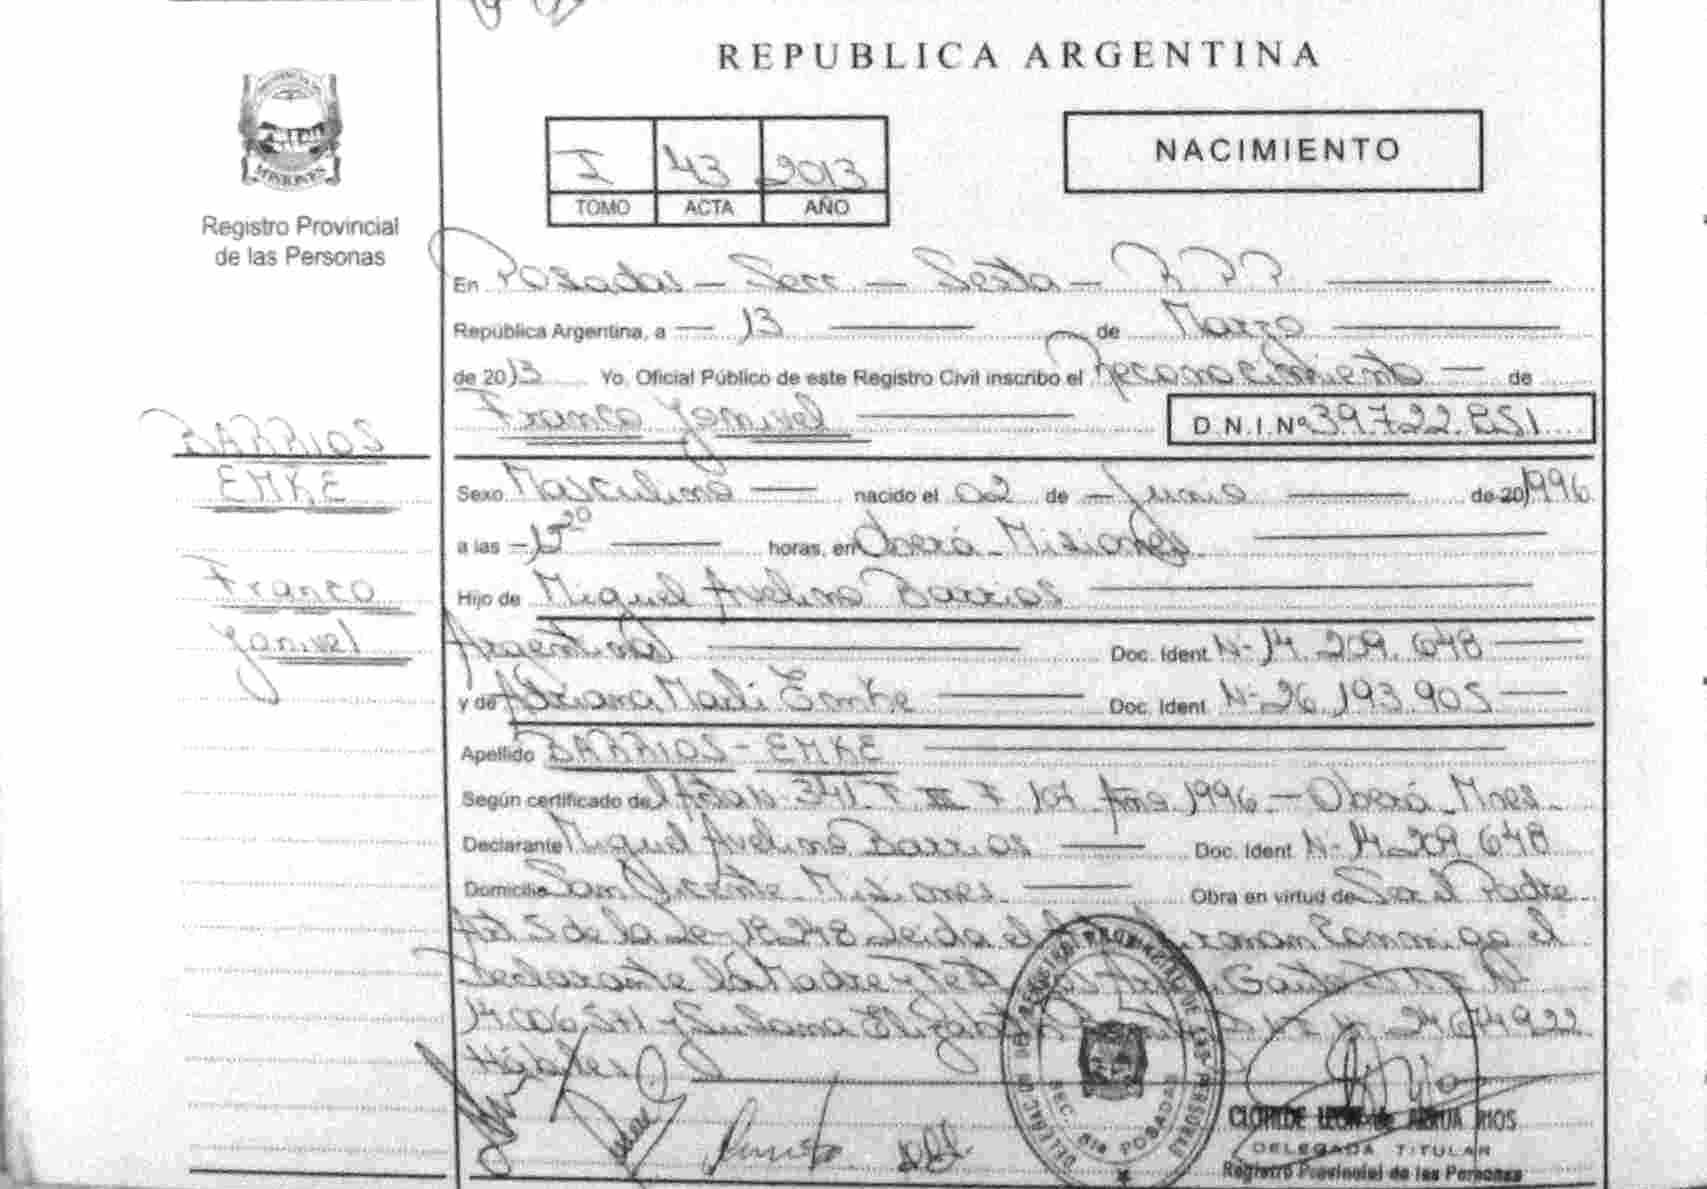 REPUBLICA ARGENTINA
MISIONES
Registro Provincial
de las Personas
I 43 2013
TOMO ACTA AÑO
NACIMIENTO
En Posadas - Secc - Sexta - R P P
República Argentina, a 13 de Marzo
de 2013 Yo. Oficial Público de este Registro Civil inscribo el Reconocimiento de
Franco Yanivel D.N.I.Nº 39.722.851
BARRIOS
EMKE
Franco
Yanivel
Sexo Masculino nacido el 02 de Junio de 20 1996
a las 15 20 horas, en Oberá - Misiones
Hijo de Miguel Avelino Barrios
Argentina Doc. Ident. Nº 14.209.648
y de Adriana Marli Emke Doc. Ident. Nº 26.193.905
Apellido BARRIOS - EMKE
Según certificado de Acta Nº 341 T III F 107 Año 1996 - Oberá - Mnes
Declarante Miguel Avelino Barrios Doc. Ident. Nº 14.209.648
Domicilio San Vicente Misiones Obra en virtud de Ser el Padre
Art 5 de la Ley 18.248 Leida el conmigo el
Declarante la Madre y
y Susana 24674922
Hábiles
REGISTRO PROVINCIAL DE LAS PERSONAS
SEC. 6ta POSADAS
CLOTILDE LEON de ARRUA RIOS
DELEGADA TITULAR
Registro Provincial de las Personas